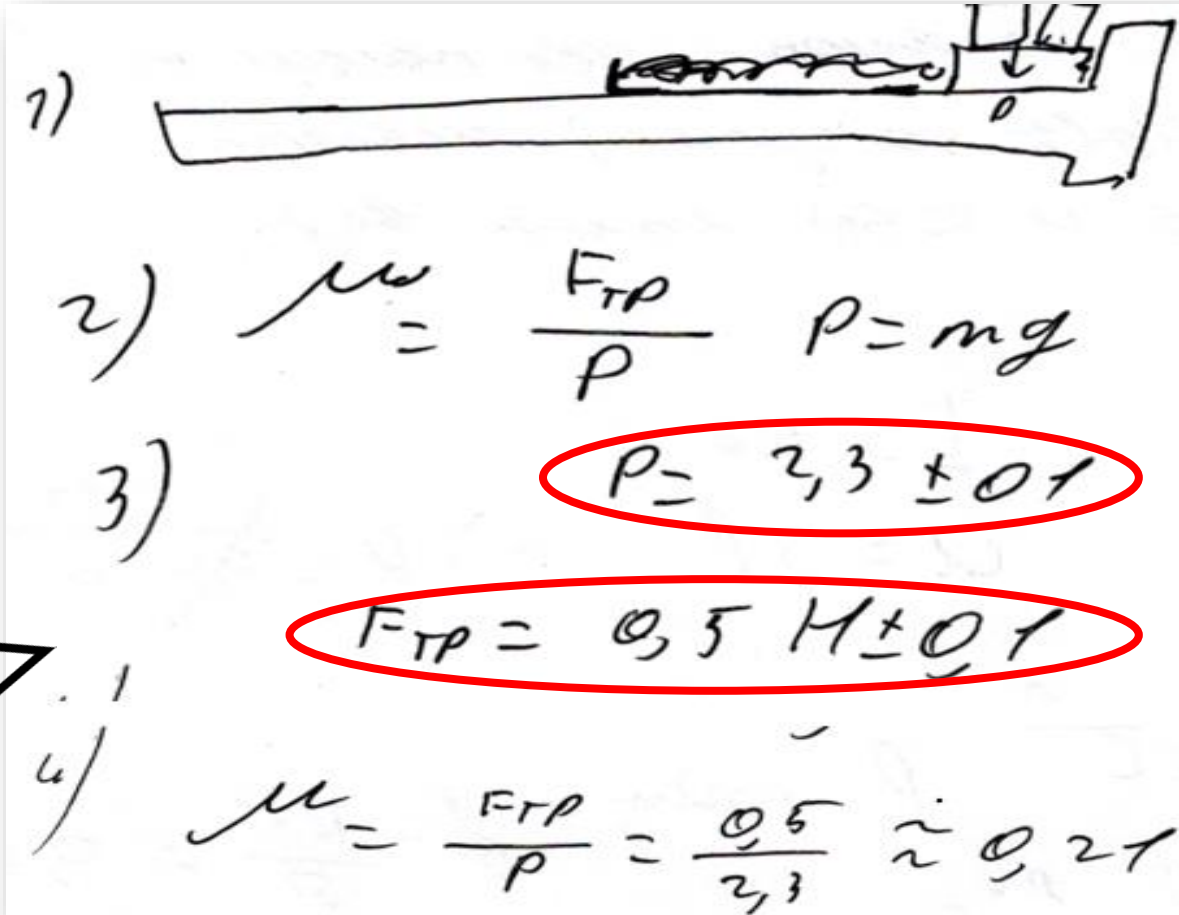 1)
P
2) μ = Fтр / P P = mg
3) P = 2,3 ± 0 1
Fтр = 0,5 Н ± 0,1
4) μ = Fтр / P = 0,5 / 2,3 ≈ 0,21